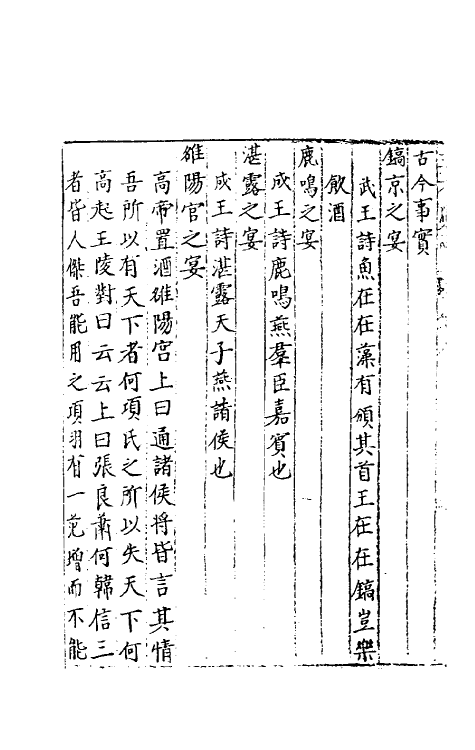 古今事實
鎬京之宴
武王詩魚在在藻有頒其首王在在鎬豈樂
飲酒
鹿鳴之宴
成王詩鹿鳴燕羣臣嘉賓也
湛露之宴
成王詩湛露天子燕諸侯也
雒陽官之宴
高帝置酒雒陽宫上曰通諸侯将皆言其情
吾所以有天下者何項氏之所以失天下何
高起王陵對曰云云上曰張良蕭何韓信三
者皆人傑吾能用之項羽有一范增而不能